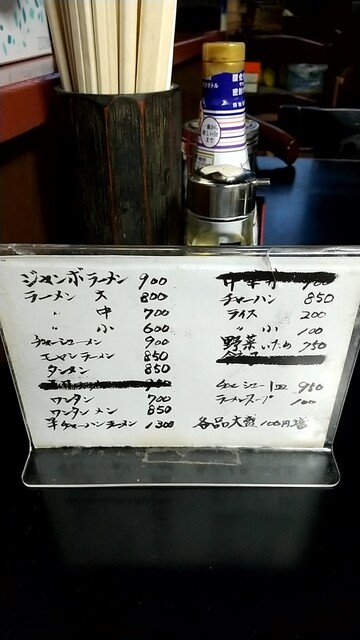 ジャンボラーメン 900
ラーメン 大 800
〃 中 700
〃 小 600
チャーシューメン 900
モヤシラーメン 850
タンメン 850
ワンタン 700
ワンタンメン 850
半チャーハンラーメン 1300
チャーハン 850
ライス 200
〃 小 100
野菜いため 750
チャーシュー1皿 950
ラーメンスープ 100
各品大盛 100円増